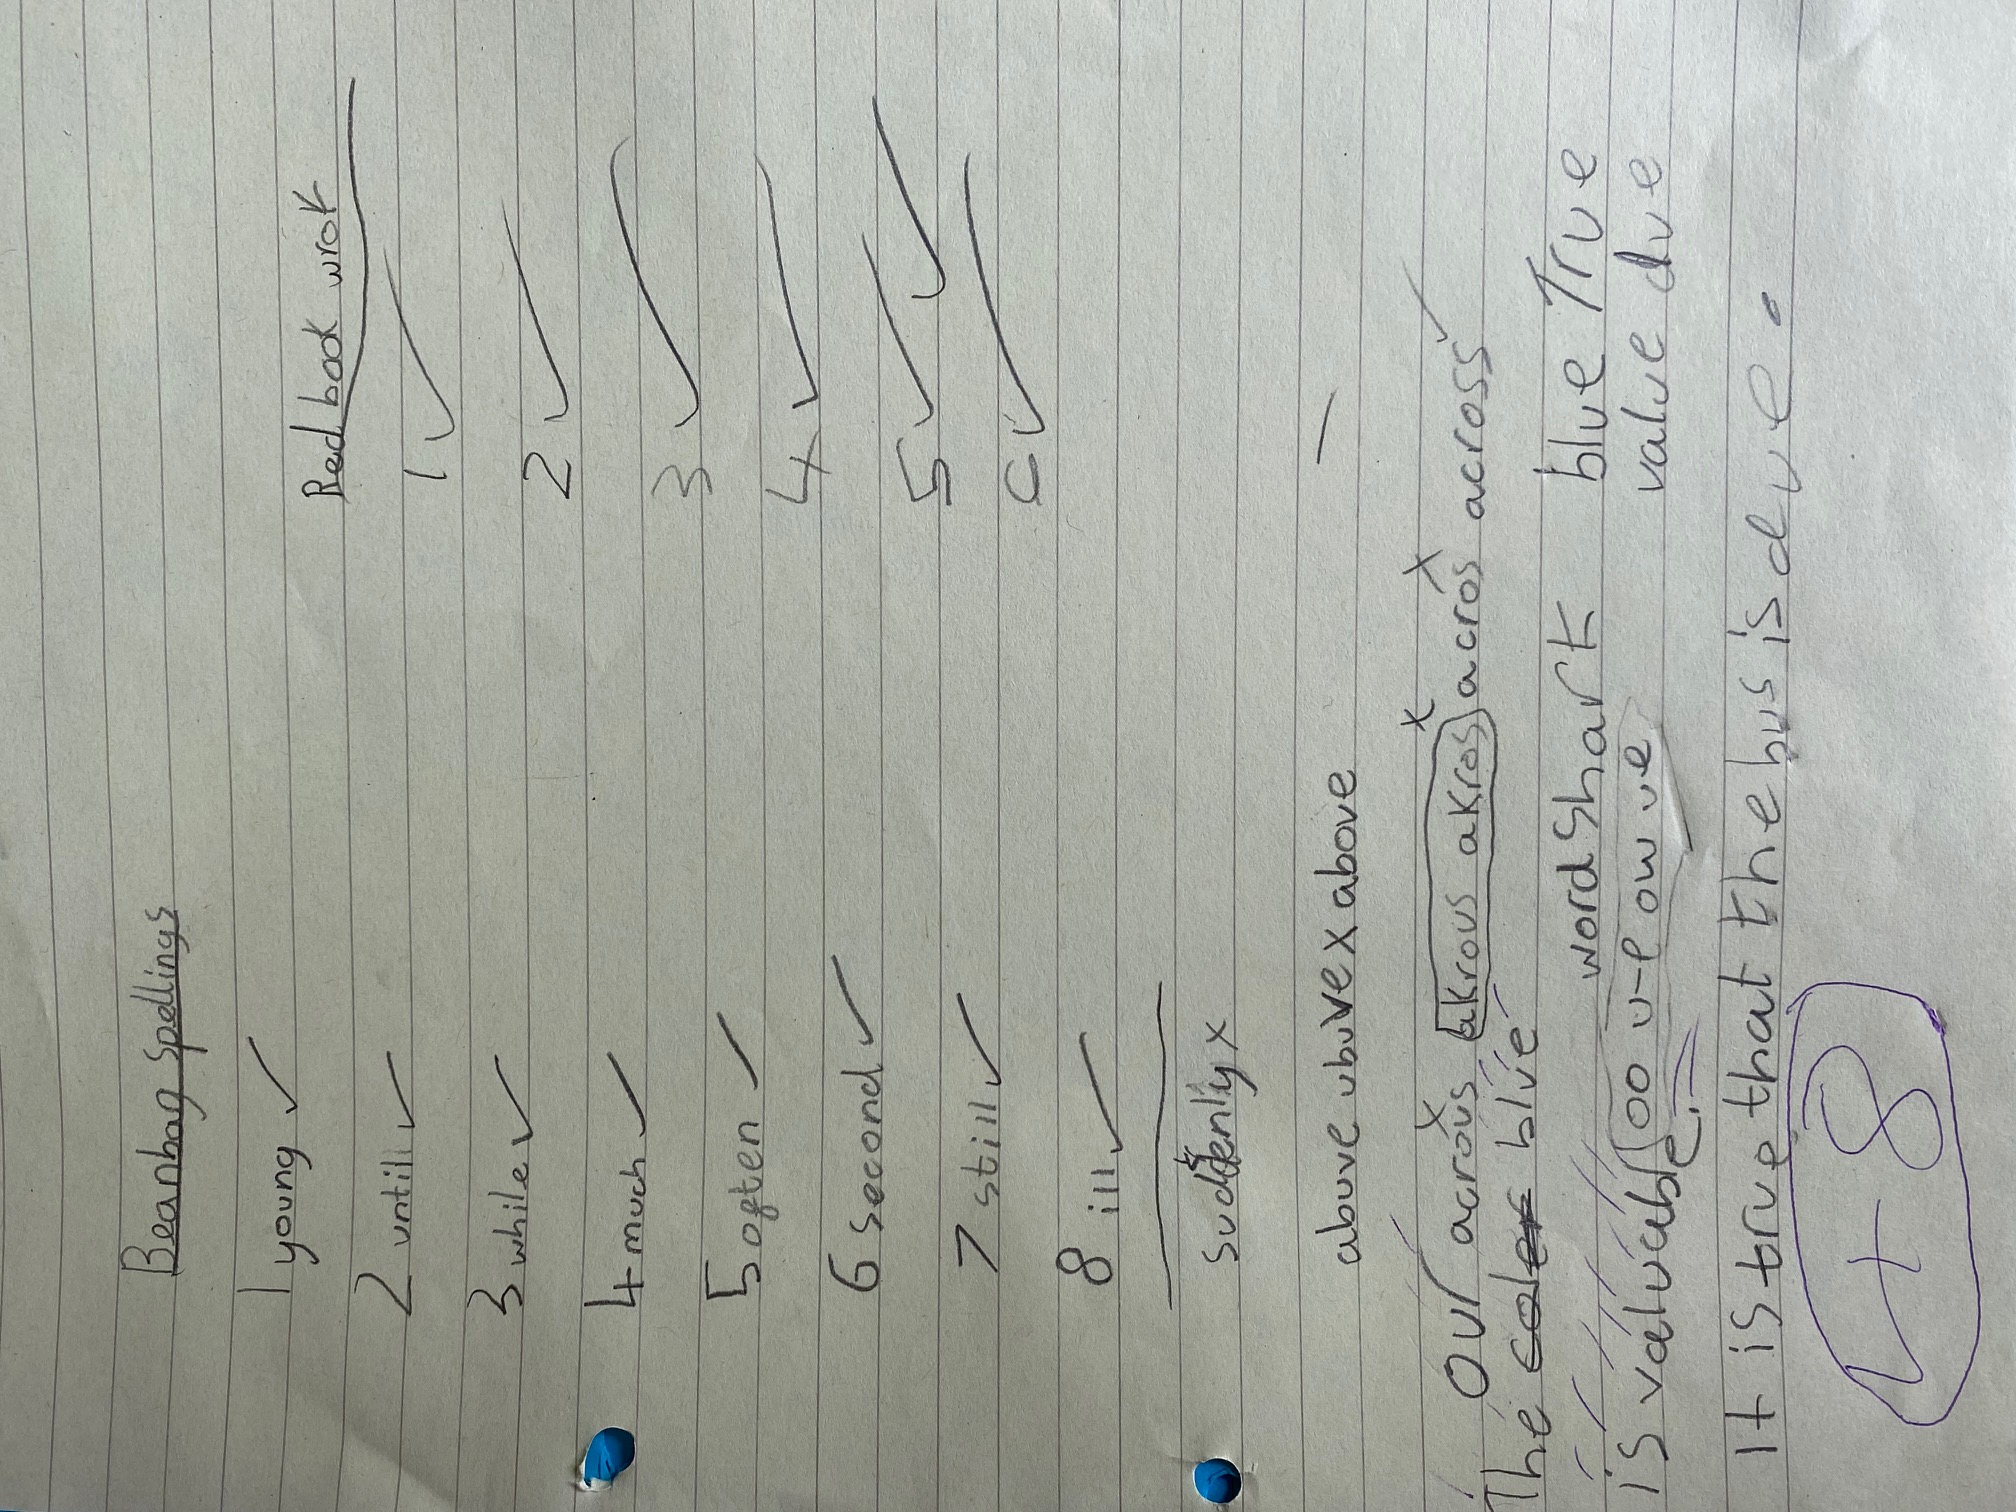 Beanbag spellings
Read book wrok
1 young ✓
1 ✓
2 untill ✓
2 ✓
3 while ✓
3 ✓
4 much ✓
4 ✓
5 often ✓
5 ✓ ✓
6 second ✓
6 ✓
7 still ✓
8 ill ✓
suddenly x
above ubuve x above —
our acrous x akrous akros x acros x across ✓
The coler blue word shark blue True
is valuable oo u-e ow ue value due
It is true that the bus is due.
L+8